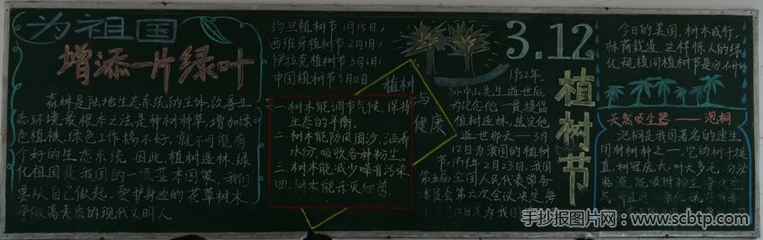 为祖国
增添一片绿叶
森林是陆地生态系统的主体,改善生
态环境最根本之法是种树种草,增加绿
色植被,绿色工作搞不好,就不可能有
个好的生态系统。因此,植树造林,绿
化祖国是我国的一项基本国策,我们
要从自己做起,爱护身边的花草树木
争做高素质的现代文明人
约旦植树节1月15日;
西班牙植树节2月1日;
伊拉克植树节3月6日;
中国植树节3月12日
植树
与
健康
一、树木能调节气候,保持
生态的平衡。
二、树木能防风固沙,涵养
水份,吸收各种粉尘。
三、树木能减少噪音污染。
四、树木能杀灭细菌。
3.12
植树节
孙中山先生逝世后,
为纪念他一贯提倡
植树造林,
逝世那天——3月
12日为我国的植树
节,1979年2月23日,我国
第五届全国人民代表常务
委员会第六次会议决定,每
今日的美国,树木成行,
林荫载道,这样惊人的绿
化规模同植树节是分不开的
天然吸尘器——泡桐
泡桐是我国著名的速生
用材树种之一,它的树干挺
直,树冠庞大,叶大多毛,分泌
手抄报图片网:www.scbtp.com